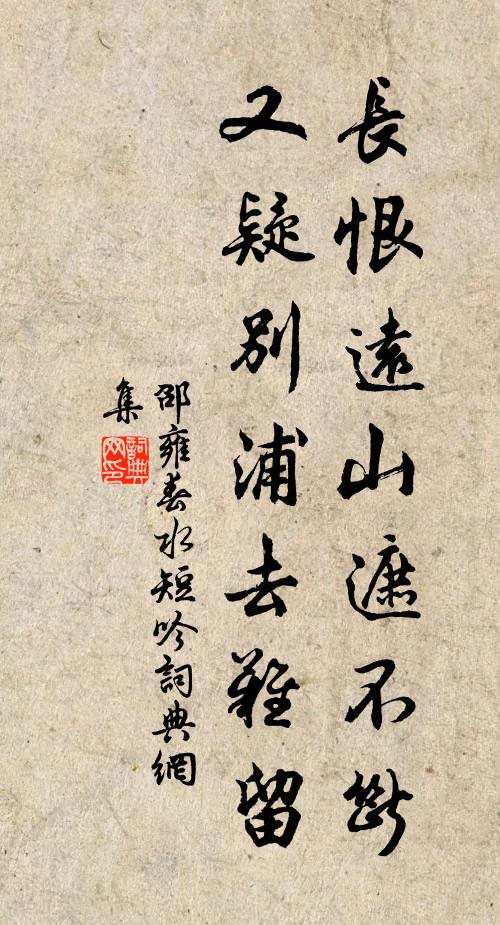 長恨遠山遮不斷
又疑別浦去難留
邵雍春水短吟詞典網
集
詞典网印